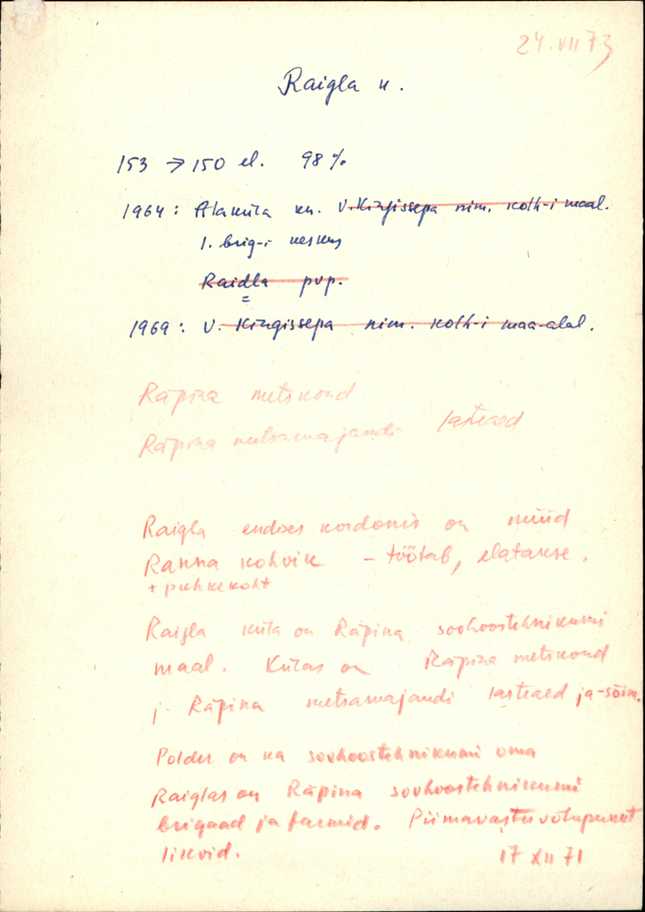 24.VII 73
Raigla k.
153 → 150 el. 98 %
1964: Alaküla kn. V. Kingissepa nim. kolh-i maal.
1. brig-i keskus
Raidla pvp.
1969: V. Kingissepa nim. kolh-i maa-alal.
Räpina metskond
Räpina metsamajandi lasteaed
Raigla endises kordonis on nüüd
Ranna kohvik – töötab, elatakse.
+ puhkekoht
Raigla küla on Räpina sovhoostehnikumi
maal. Külas on Räpina metskond
j. Räpina metsamajandi lasteaed ja -sõim.
Polder on ka sovhoostehnikumi oma
Raiglas on Räpina sovhoostehnikumi
brigaad ja farmid. Piimavastuvõtupunkt
likvid.
17 XII 71